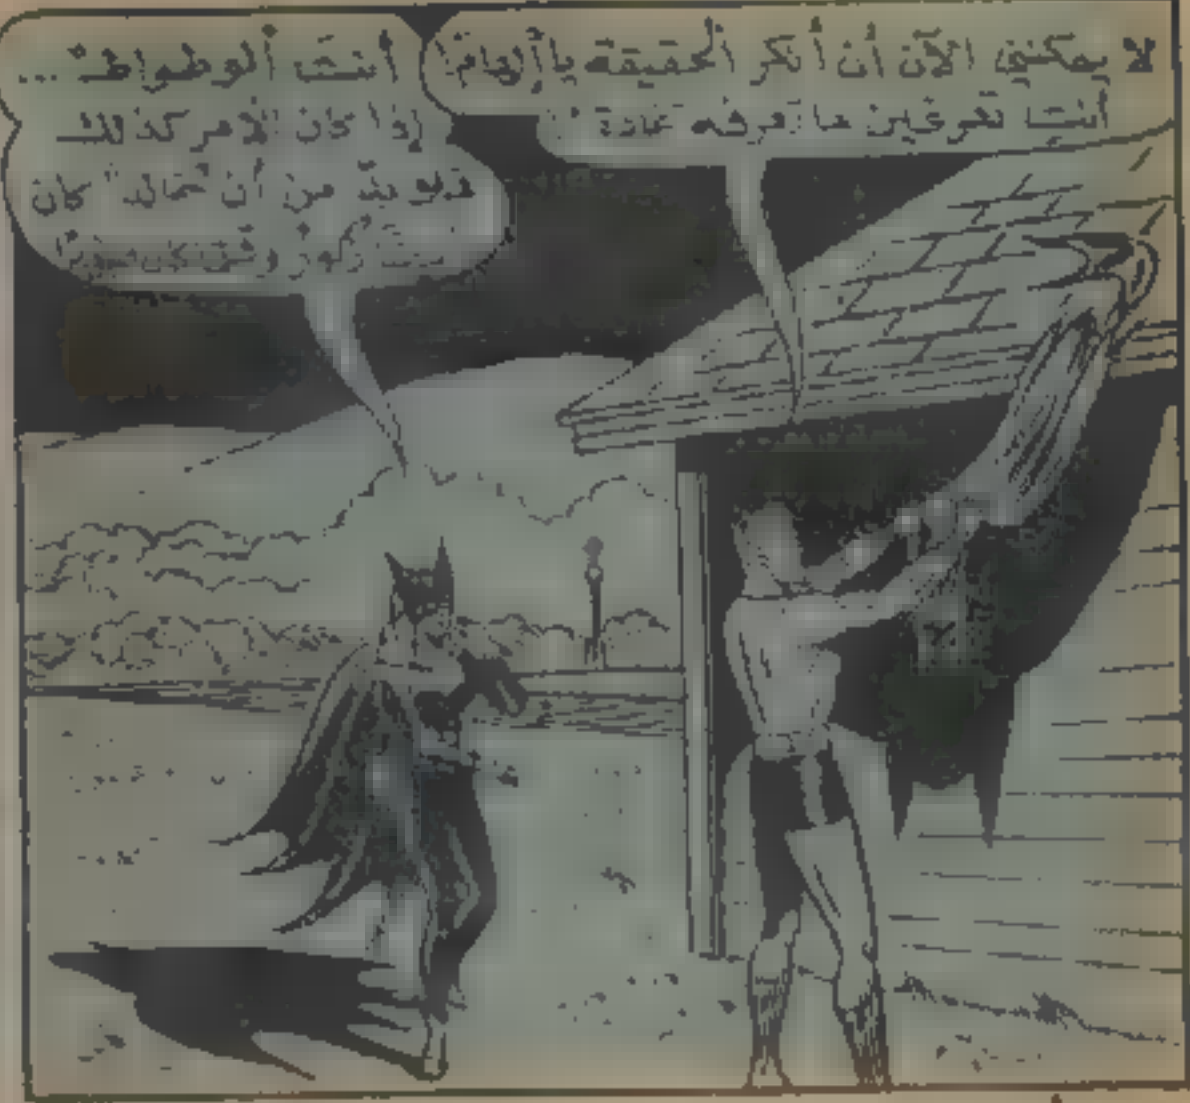 لا يمكنني الآن أن أنكر الحقيقة يا إلهام!
أنت تعرفين ما تعرفه عادة
أنت الوطواط ...
إذا كان الأمر كذلك
فلا بد من أن خالد كان